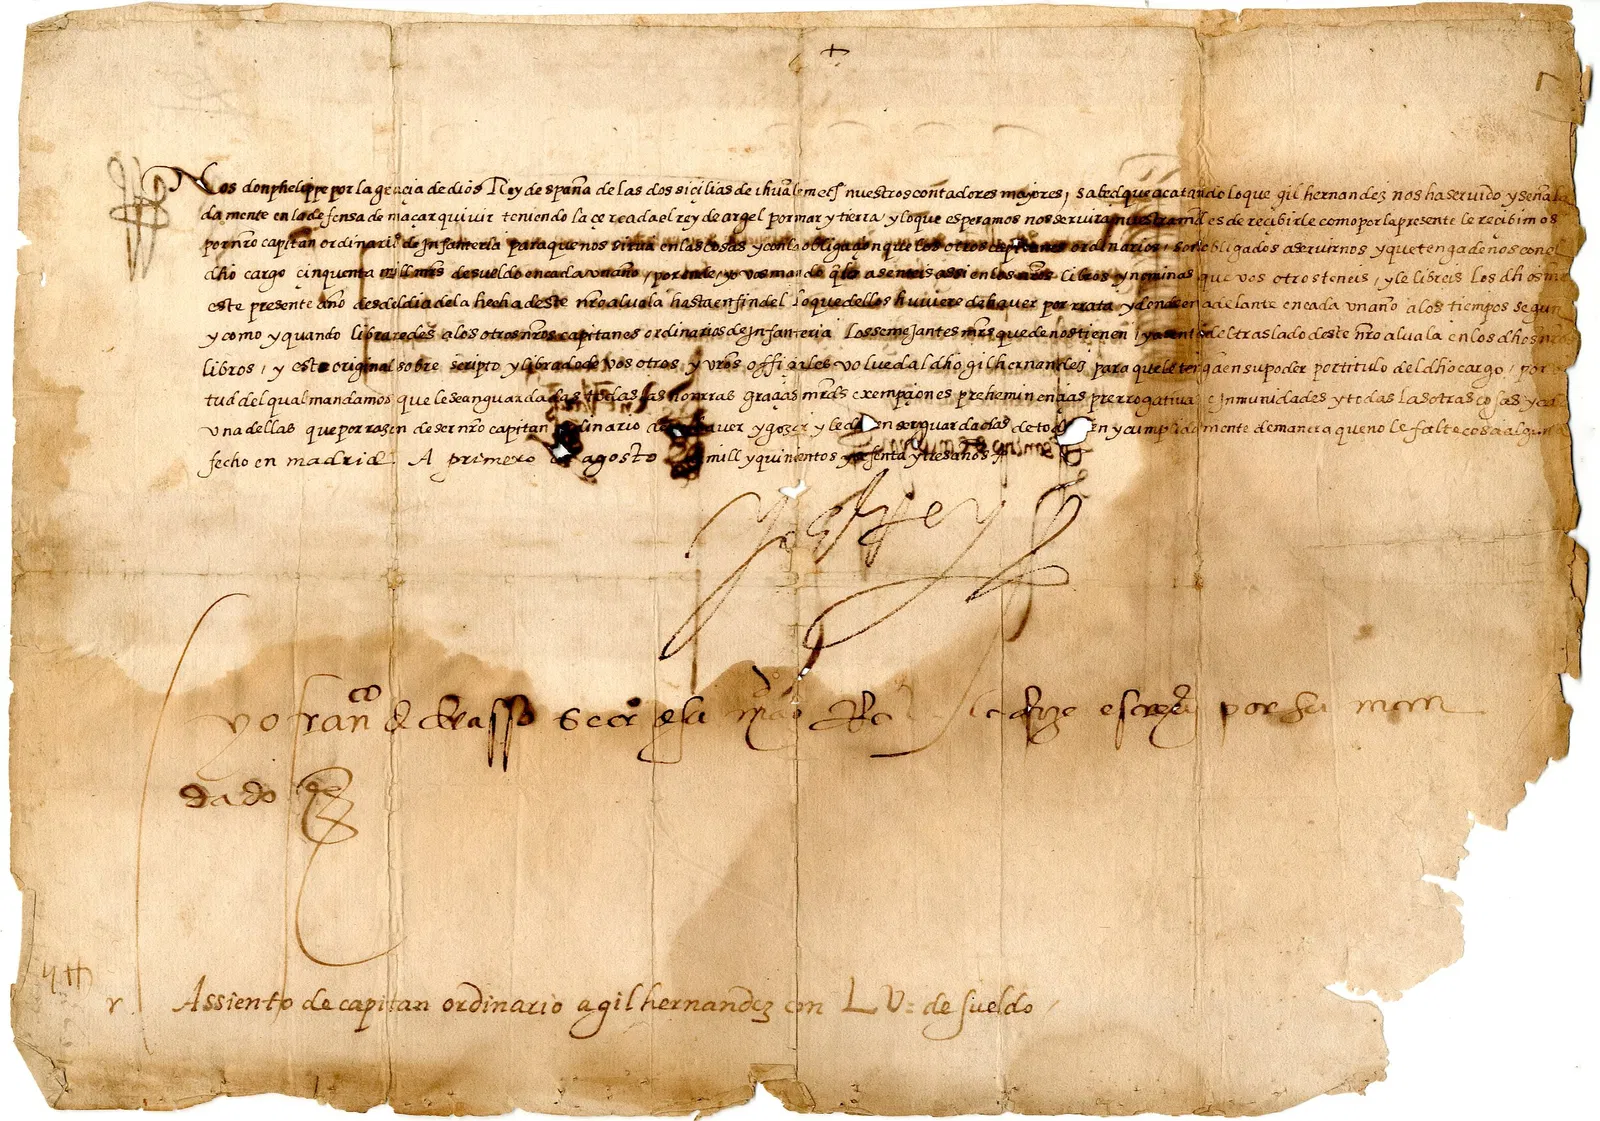 Nos don phelippe por la gracia de dios Rey de spaña de las dos siçilias de ihrl̃m ecf nuestros contadores mayores, sabed que acatando lo que gil hernandez nos ha seruido y señala
damente en la defensa de maçarquiuir teniendo la çercada el rey de argel por mar y tierra, y lo que esperamos nos seruira nuestra md es de recibirle como por la presente le recibimos
por nr̃o capitan ordinario de Infanteria para que nos sirua en las cosas y con la obligaçion que los otros capitanes ordinarios, son obligados a seruirnos y que tenga de nos con el
dho cargo cinquenta mill mrs de sueldo en cada vn año, por ende, yo vos mando q̃ lo asenteis assi en los nr̃os libros y nominas que vos otros teneis, y le libreis los dhos mrs
este presente año desde el dia de la hecha deste nr̃o aluala hasta en fin del lo que dellos huuiere de hauer por rrata y dende en adelante en cada vn año a los tiempos segun
y como y quando libraredes a los otros nr̃os capitanes ordinarios de Infanteria los semejantes mrs que de nos tienen, y asentad el traslado deste nr̃o aluala en los dhos nr̃os
libros, y este original sobre scripto y librado de vos otros y vr̃os offiçiales volued al dho gil hernandez para que le tenga en su poder por titulo del dho cargo, por
tud del qual mandamos que le sean guardadas todas las honrras graçias mrds exempçiones preheminençias prerrogatiuas e Inmunidades y todas las otras cosas y cada
vna dellas que por razon de ser nr̃o capitan ordinario deue hauer y gozar y le deuen ser guardadas de todo bien y cumplidamente de manera que no le falte cosa alguna
fecho en madrid. A primero de agosto de mill y quinientos y sesenta y tres años
yo el Rey
yo fran.co de erasso secr.o de su mag.d Re la fize escreuir por su man
dado
Assiento de capitan ordinario a gil hernandez con L U= de sueldo